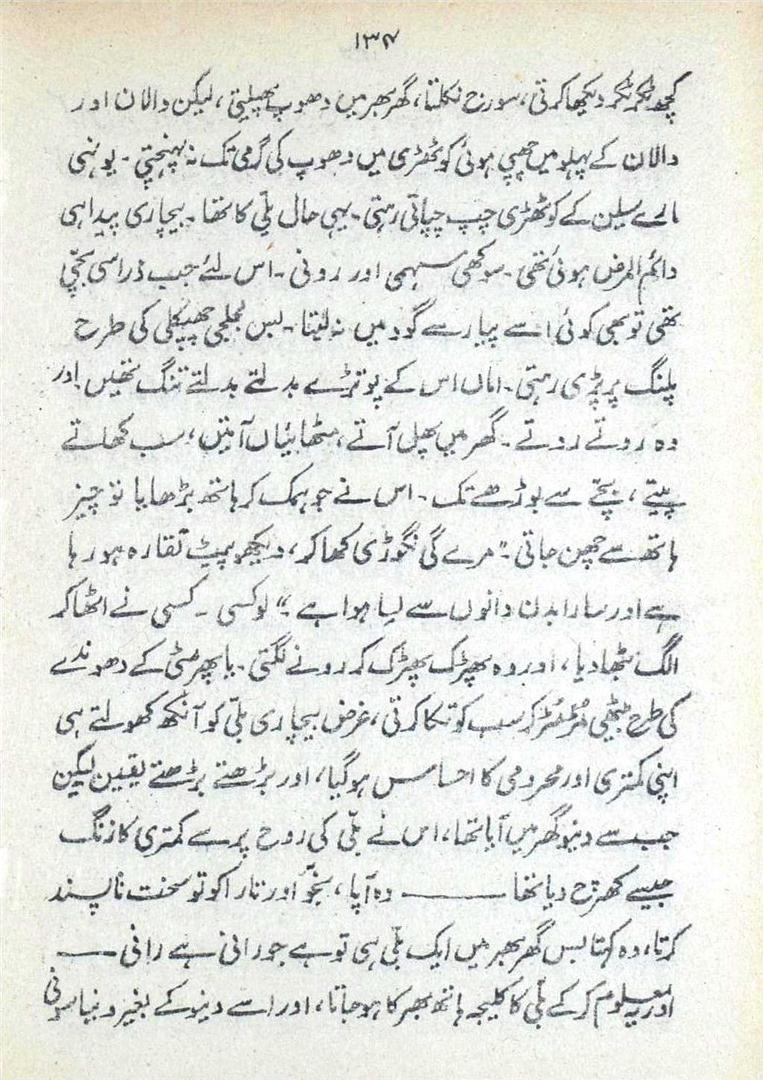 ۱۳۴
کچھ ٹکر ٹکر دیکھا کرتی، سورج نکلتا، گھر بھر میں دھوپ پھیلتی، لیکن دالان اور
دالان کے پہلو میں چھپی ہوئی کوٹھڑی میں دھوپ کی گرمی تک نہ پہنچتی۔ یونہی
مارے سیلن کے کوٹھڑی چپ چپاتی رہتی۔ یہی حال بلّی کا تھا۔ بیچاری پیدا ہی
دائم المرض ہوئی تھی۔ سوکھی سہمی اور رونی۔ اس لئے جب ذرا سی بچّی
تھی تو بھی کوئی اسے پیار سے گود میں نہ لیتا۔ بس لجلجی چھپکلی کی طرح
پلنگ پر پڑی رہتی۔ اماں اس کے پوتڑے بدلتے بدلتے تنگ تھیں اور
وہ روتے روتے۔ گھر میں پھل آتے، مٹھائیاں آتیں، سب کھاتے
پیتے، بچّے سے بوڑھے تک۔ اس نے جو ہمک کر ہاتھ بڑھایا تو چیز
ہاتھ سے چھن جاتی۔ "مرے گی نگوڑی کھا کر، دیکھو پیٹ نقارہ ہو رہا
ہے اور سارا بدن دانوں سے لپا ہوا ہے۔" لو کسی ۔ کسی نے اٹھا کر
الگ بٹھا دیا، اور وہ پھڑک پھڑک کر رونے لگتی۔ یا پھر مٹی کے دھوندے
کی طرح بیٹھی مُڑ مُڑ کر سب کو تکا کرتی، غرض بیچاری بلّی کو آنکھ کھولتے ہی
اپنی کمتری اور محرومی کا احساس ہو گیا، اور بڑھتے بڑھتے یقین لیکن
جب سے دینو گھر میں آیا تھا، اس نے بلّی کی روح پر سے کمتری کا زنگ
جیسے کھرچ دیا تھا ــــــــ وہ آپا، نجّو اور تارا کو تو سخت ناپسند
کرتا، وہ کہتا بس گھر بھر میں ایک بلّی ہی تو ہے جو رانی ہے رانی ــــــ
اور یہ معلوم کر کے بلّی کا کلیجہ ہاتھ بھر کا ہو جاتا، اور اسے دینو کے بغیر دنیا سونی